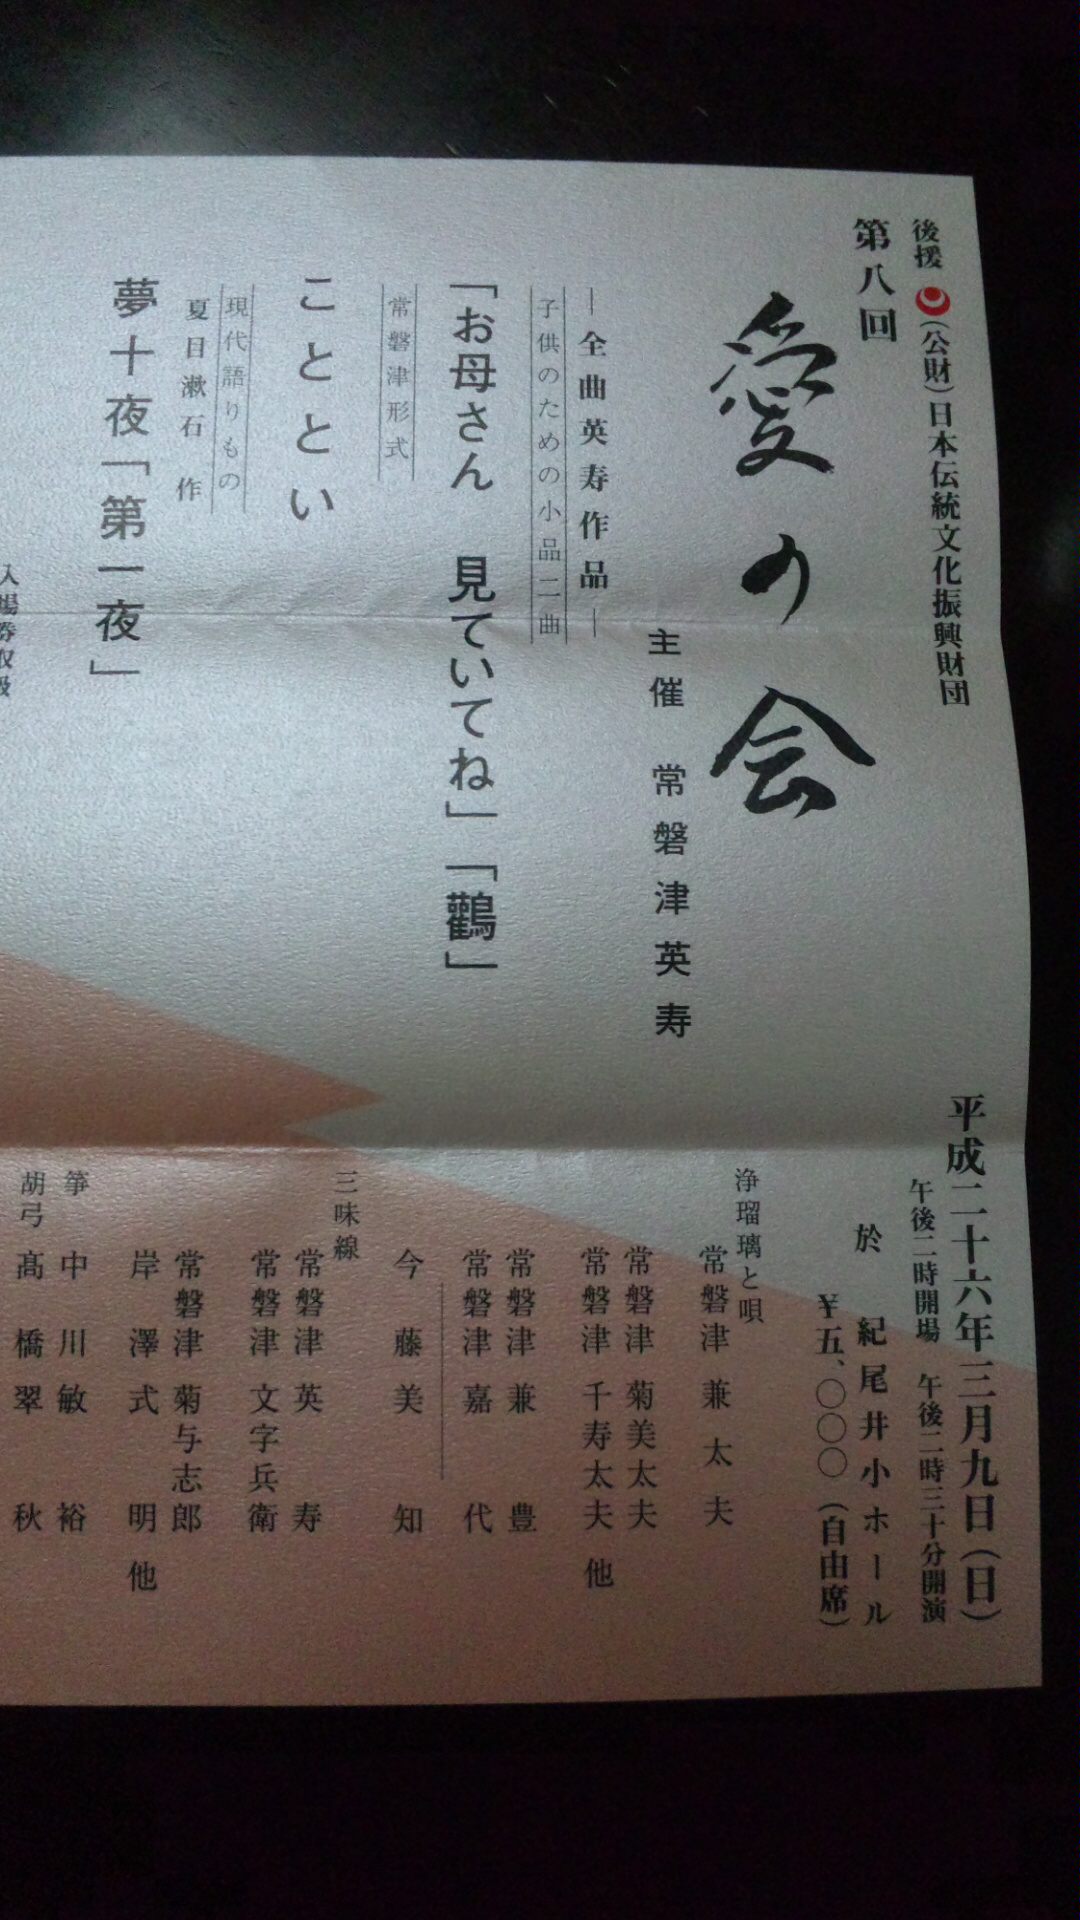 後援 (公財)日本伝統文化振興財団
第八回
愛の会
主催 常磐津英寿
―全曲英寿作品―
子供のための小品二曲
「お母さん 見ていてね」「鸛」
常磐津形式
こととい
現代語りもの
夏目漱石 作
夢十夜「第一夜」
平成二十六年三月九日(日)
午後二時開場 午後二時三十分開演
於 紀尾井小ホール
¥五、〇〇〇(自由席)
浄瑠璃と唄
常磐津 兼太夫
常磐津 菊美太夫
常磐津 千寿太夫 他
常磐津 兼豊
常磐津 嘉代
今藤美知
三味線
常磐津 英寿
常磐津 文字兵衛
常磐津 菊与志郎
岸澤式明 他
箏 中川敏裕
胡弓 髙橋翠秋
入場券取扱